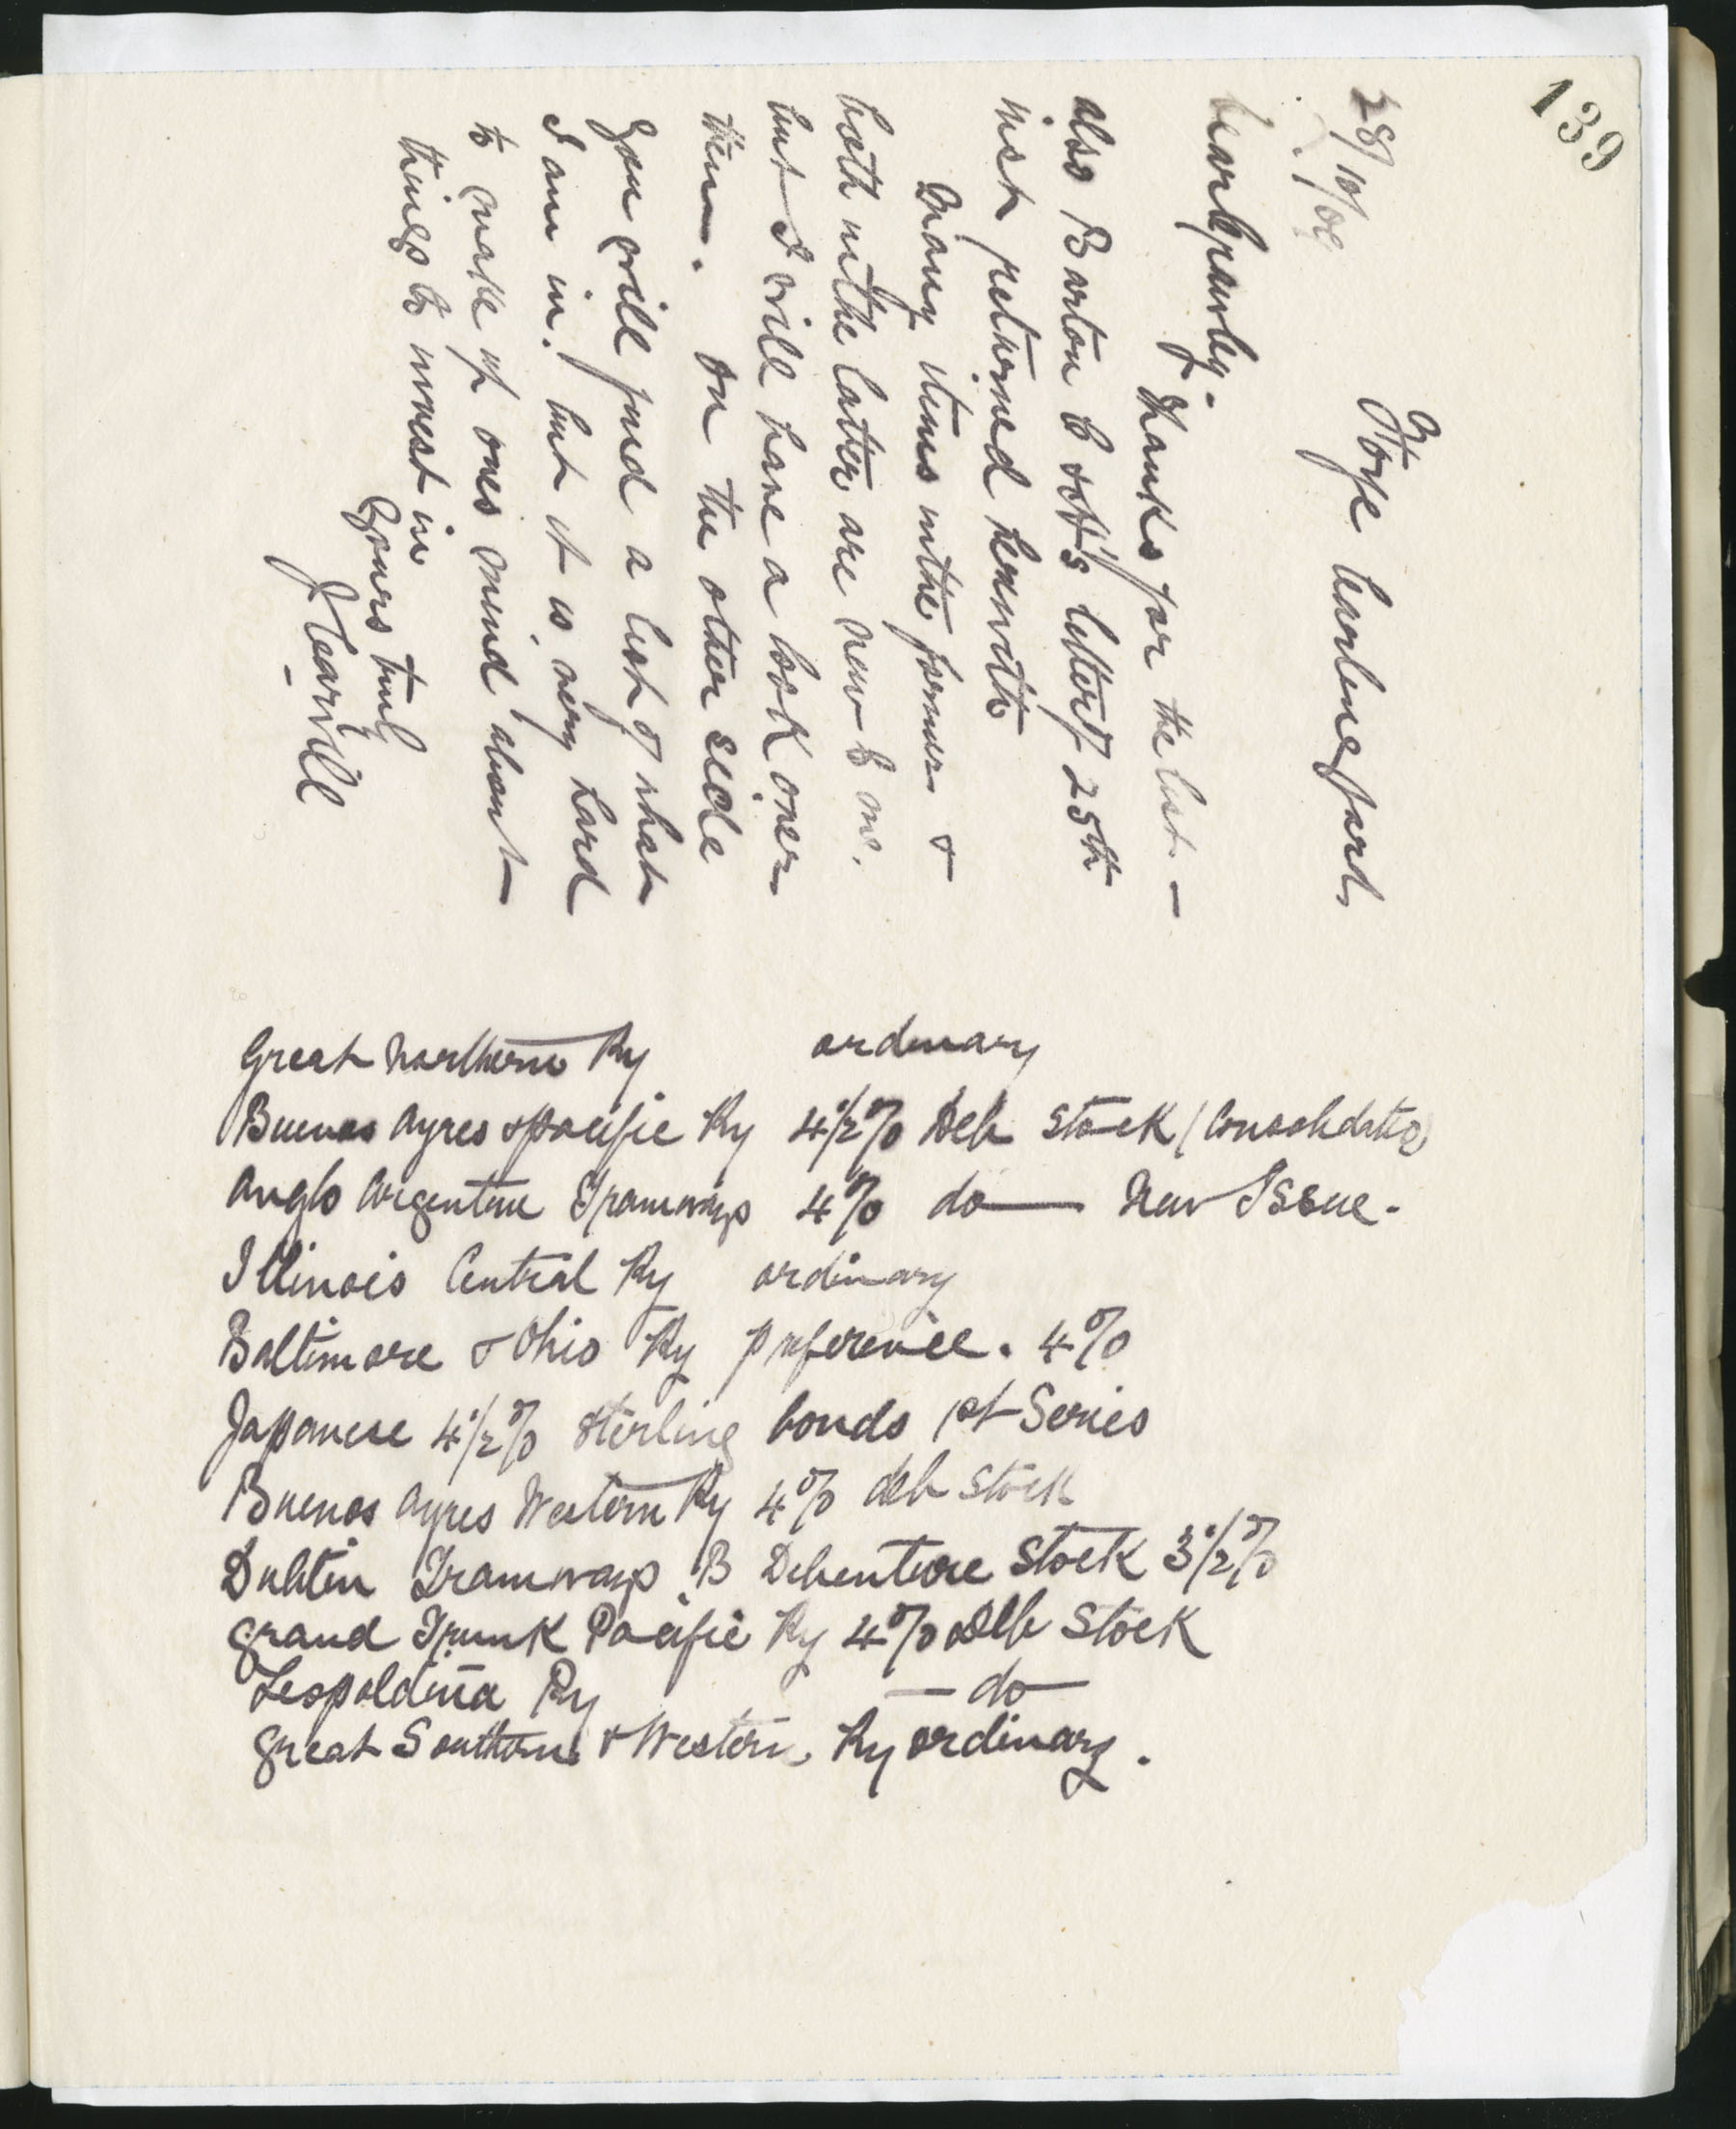 139
28/10/09
Foxe Castlepark
Dear Sparky.
Thanks for the list —
also Barton & soff's letter of 25th
inst returned herewith
Many items in the former &
both in the latter are new to me.
but I will have a look over
them. On the other side
you will find a list of what
I am in. but it is very hard
to make up ones mind about
things to invest in
Yours truly
J Carvill
Great Northern Ry ordinary
Buenos Ayres & Pacific Ry 4½% Deb Stock (Consolidated)
Anglo Argentine Tramways 4% do — New Issue.
Illinois Central Ry ordinary
Baltimore & Ohio Ry preference. 4%
Japanese 4½% Sterling bonds 1st Series
Buenos Ayres Western Ry 4% deb stock
Dublin Tramways B Debenture Stock 3½%
Grand Trunk Pacific Ry 4% Deb Stock
Leopoldina Ry — do —
Great Southern & Western Ry ordinary.